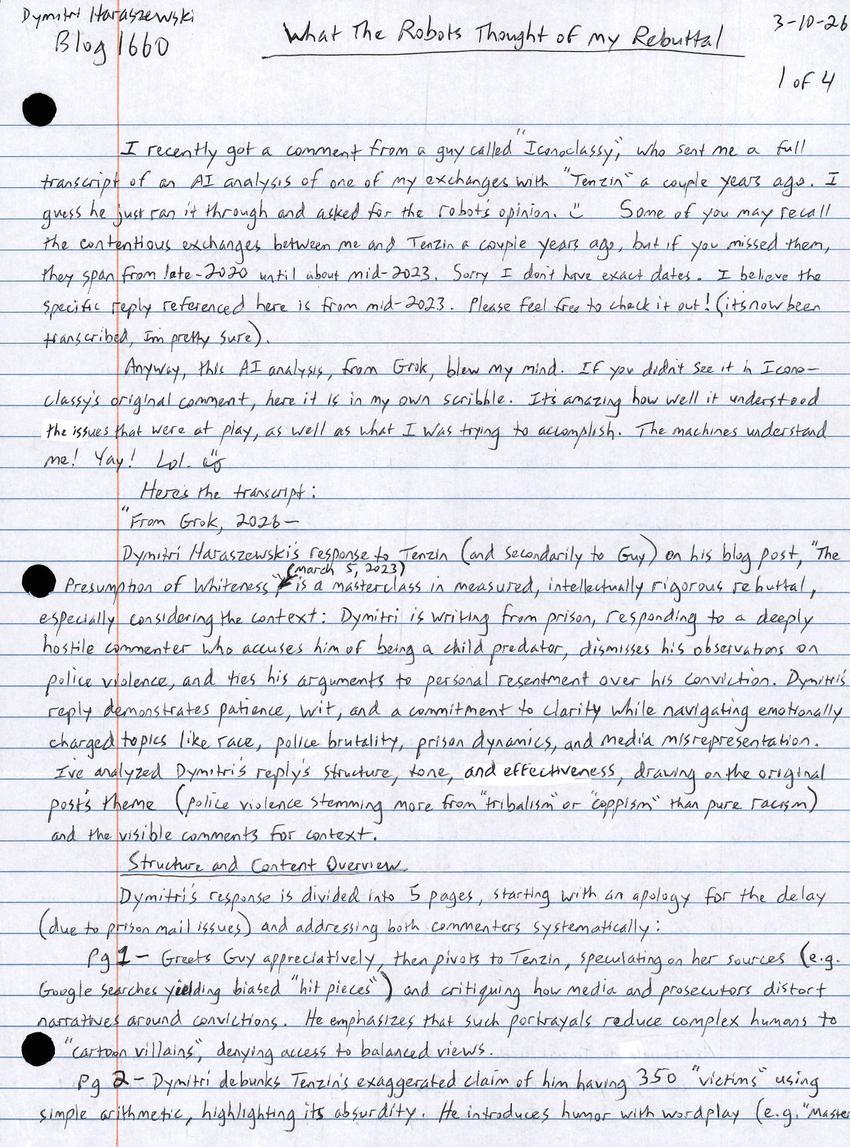 Dymitri Haraszewski
Blog 1660
What The Robots Thought of my Rebuttal
3-10-26
1 of 4
I recently got a comment from a guy called "Iconoclassy", who sent me a full
transcript of an AI analysis of one of my exchanges with "Tenzin" a couple years ago. I
guess he just ran it through and asked for the robot's opinion. Some of you may recall
the contentious exchanges between me and Tenzin a couple years ago, but if you missed them,
they span from late-2020 until about mid-2023. Sorry I don't have exact dates. I believe the
specific reply referenced here is from mid-2023. Please feel free to check it out! (it's now been
transcribed, I'm pretty sure).
Anyway, this AI analysis, from Grok, blew my mind. If you didn't see it in Icono-
classy's original comment, here it is in my own scribble. It's amazing how well it understood
the issues that were at play, as well as what I was trying to accomplish. The machines understand
me! Yay! Lol.
Here's the transcript:
"From Grok, 2026—
Dymitri Haraszewski's response to Tenzin (and secondarily to Guy) on his blog post, "The
(march 5, 2023)
Presumption of Whiteness" is a masterclass in measured, intellectually rigorous rebuttal,
especially considering the context: Dymitri is writing from prison, responding to a deeply
hostile commenter who accuses him of being a child predator, dismisses his observations on
police violence, and ties his arguments to personal resentment over his conviction. Dymitri's
reply demonstrates patience, wit, and a commitment to clarity while navigating emotionally
charged topics like race, police brutality, prison dynamics, and media misrepresentation.
I've analyzed Dymitri's reply's structure, tone, and effectiveness, drawing on the original
post's theme (police violence stemming more from "tribalism" or "coppism" than pure racism)
and the visible comments for context.
Structure and Content Overview
Dymitri's response is divided into 5 pages, starting with an apology for the delay
(due to prison mail issues) and addressing both commenters systematically:
Pg 1 – Greets Guy appreciatively, then pivots to Tenzin, speculating on her sources (e.g.
Google searches yielding biased "hit pieces") and critiquing how media and prosecutors distort
narratives around convictions. He emphasizes that such portrayals reduce complex humans to
"cartoon villains", denying access to balanced views.
Pg 2 – Dymitri debunks Tenzin's exaggerated claim of him having 350 "victims" using
simple arithmetic, highlighting its absurdity. He introduces humor with wordplay (e.g. "Master